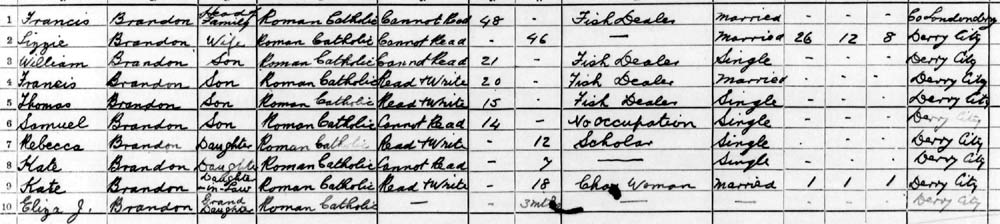 1 Francis Brandon Head of Family Roman Catholic Cannot Read 48 - Fish Dealer Married Co Londonderry
2 Lizzie Brandon Wife Roman Catholic Cannot Read - 46 — Married 26 12 8 Derry City
3 William Brandon Son Roman Catholic Cannot Read 21 - Fish Dealer Single - - - Derry City
4 Francis Brandon Son Roman Catholic Read & Write 20 - Fish Dealer Married - - - Derry City
5 Thomas Brandon Son Roman Catholic Read & Write 15 - Fish Dealer Single - - - Derry City
6 Samuel Brandon Son Roman Catholic Cannot Read 14 - No occupation Single - - - Derry City
7 Rebecca Brandon Daughter Roman Catholic Read & Write - 12 Scholar Single - - - Derry City
8 Kate Brandon Daughter Roman Catholic Cannot Read - 7 — Single - - - Derry City
9 Kate Brandon Daughter-in-Law Roman Catholic Read & Write - 18 Char Woman Married 1 1 1 Derry City
10 Eliza J. Brandon Grand Daughter Roman Catholic — - 3 mths — — - - - Derry City